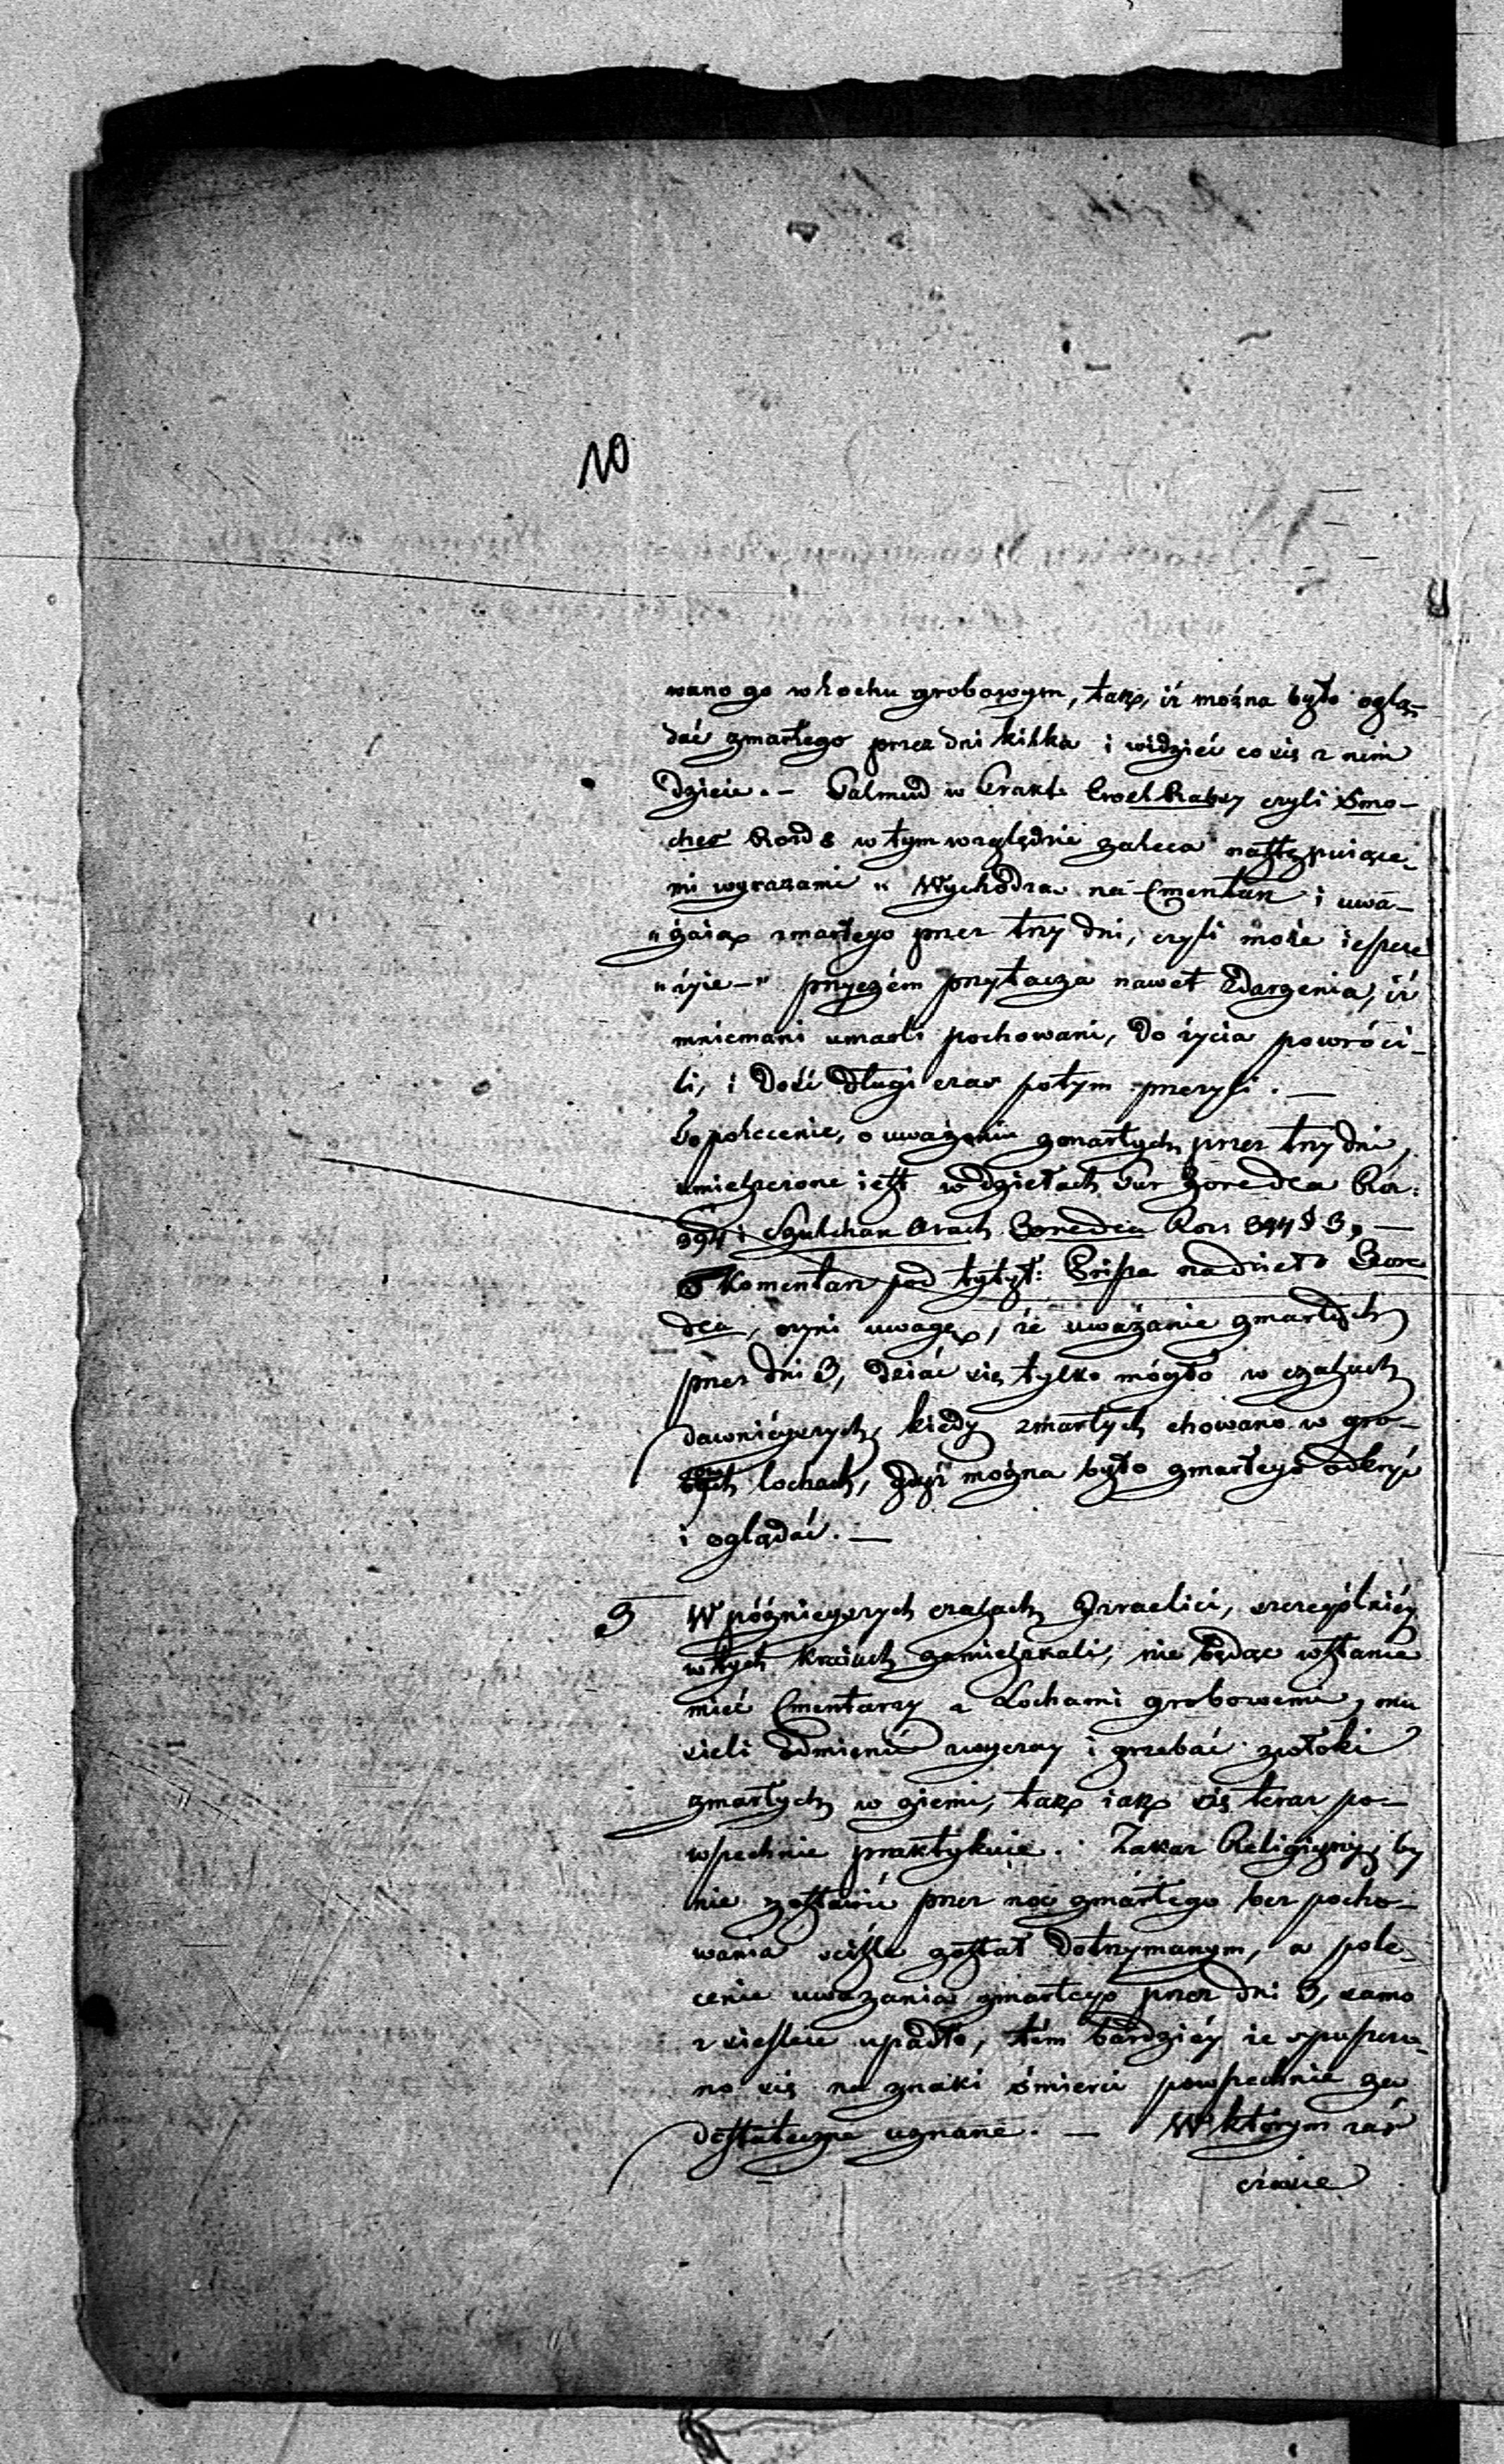 10
wano go w lochu grobowym, tak, iż można było oglą-
dać zmarłego przez dni kilka i widzieć co się z nim
dzieie. — Talmud w Trakt. Ewel Rabsy czyli Smo-
ches Rozd 8 w tym względzie zaleca następuiące-
mi wyrazami „ Wychodza na Cmentarz i uwa-
„ żaią zmarłego przez trzy dni, czyli może ieszcze
„ żyie —" przyczém przytacza nawet zdarzenia, iż
mniemani umarli pochowani, do życia powróci-
li, i dość długi czas potym przeżyli. —
To polecenie, o uważaniu zmarłych przez trzy dni,
umieszczone iest w dziełach Tur Joredea Roz:
394 i Szulchan Orach Joredea Roz: 394 § 3, —
Komentarz pod tytuł: Prisza na dzieło Jore
dea, czyni uwagę, że uważanie zmarłych
przez dni 3, dziać się tylko mogło w czasach
dawnieyszych, kiedy zmarłych chowano w gro-
bowych lochach, gdyż można było zmarłego odkryć
i oglądać. —
3 W późnieyszych czasach Izraelici, szczególniéy
w tych kraiach zamieszkali, nie będąc w stanie
mieć Cmentarzy z Lochami grobowemi, mu
sieli odmienić zwyczay i grzebać zwłoki
zmarłych w ziemi, tak iak się teraz po-
wszechnie praktykuie. Zakaz Religiyny, by
nie zostawić przez noc zmarłego bez pocho-
wania ściśle został dotrzymanym, a pole-
cenie uważania zmarłego przez dni 3, samo
z siebie upadło, tém bardziéy że spuszcza-
no się na znaki śmierci powszechnie za
dostateczne uznane. — W którym zaś
czasie